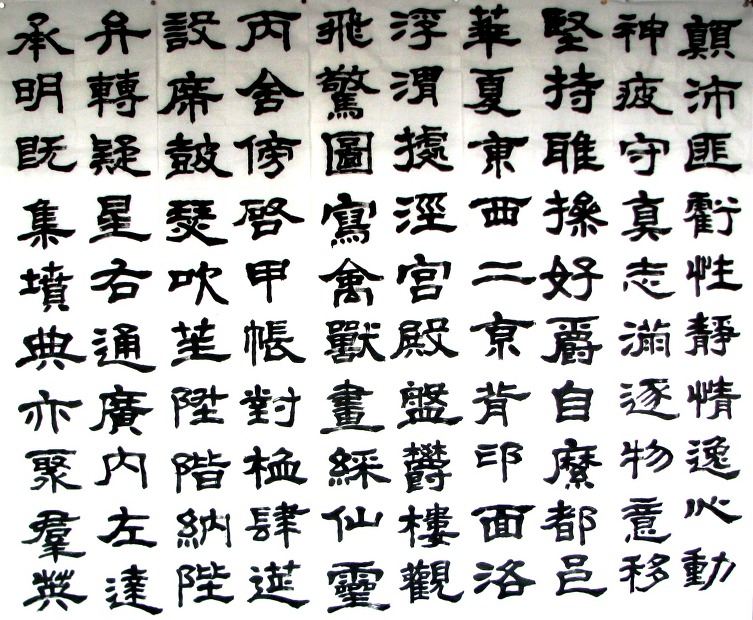 顛沛匪虧性靜情逸心動
神疲守真志滿逐物意移
堅持雅操好爵自縻都邑
華夏東西二京背邙面洛
浮渭據涇宮殿盤鬱樓觀
飛驚圖寫禽獸畫綵仙靈
丙舍傍啓甲帳對楹肆筵
設席鼓瑟吹笙陞階納陛
弁轉疑星右通廣內左達
承明既集墳典亦聚羣英